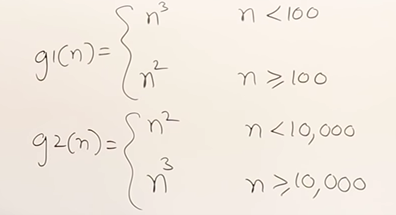 g1(n) = { n³ n < 100
n² n ⩾ 100
g2(n) = { n² n < 10,000
n³ n ⩾ 10,000